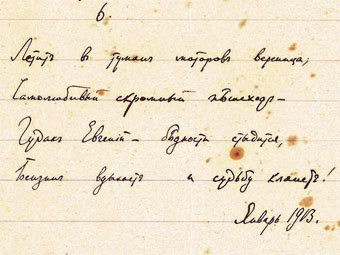 6.
Летитъ в туманъ моторовъ вереница;
Самолюбивый скромный пѣшеходъ –
Чудакъ Евгенiй – бѣдности стыдится,
Бензинъ вдыхаетъ и судьбу клянетъ!
Январь 1913.